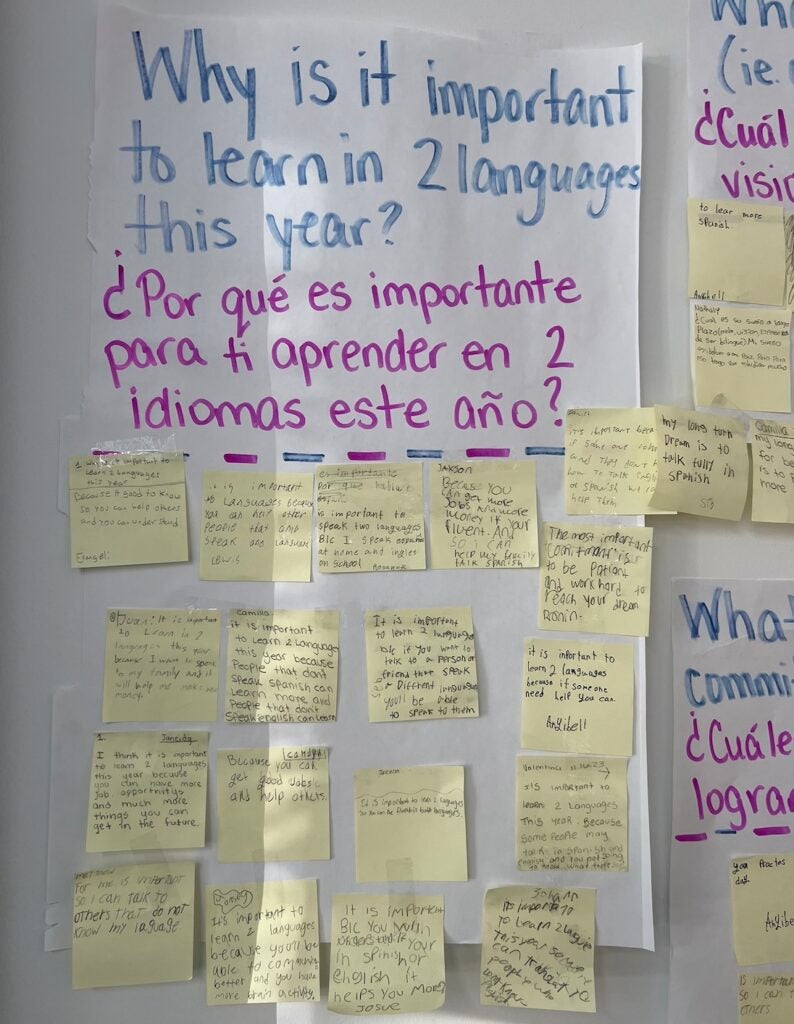 Why is it important
to learn in 2 languages
this year?
¿Por qué es importante
para ti aprender en 2
idiomas este año?
Wh
(ie.
¿Cuál
visio
to lear more
spanish.
Anyibell
Nathaly
de ser bilingue) Mi sueño
my long turn
Dream is to
talk fully in
spanish
Camilla
my long
for be
is to
more
1. Why is it important to
learn 2 languages
this year
Because it good to know
so you can help others
and you can under stand
it is important
Languages becaus
you can help other
People that and
speak and Language
es importante
Por qué hablar
is important to
speak two languages
B/c I speak español
at home and ingles
on school
JAKSON
Becas YOU
can get more
Jobs and more
money if your
fluent. And
so i can
help my family
talk spanish
it's important beca
if some one
and they don't k
how to talk english
or spanish we ca
help them
The most important
Comitmant is
to be patiant
and work hard to
reach your dream
: It is important
to learn in 2
languages this year
because I want to speak
to my family and it
will help me make more
money.
Camilla
it is important
to Learn 2 Language
this year because
People that don't
speak spanish can
Learn more and
People that don't
speak english can learn
It is important
to learn 2 language
b/c if you want to
talk to a person or
friend that speak
a Diffrent language
you'll be able
to speak to them
it is important to
learn 2 languages
because if someone
need help you can.
Anyibell
1.
I think it is important
to learn 2 languages
this year because
you can have more
Job opportnitys
and much more
things you can
get in the future.
Because you can
get good Jobs
and help others.
It is important to learn 2 languages
Valentina 11.16.23
is important to
learn 2 Languages
This year. Because
some people may
talk in spanish and
english and you not going
For me is important
so I can talk to
others that do not
know my language
It's important to
learn 2 languages
because you'll be
able to communicate
better and you have
more brain activity.
It is important
B/c you
understand if your
in spanish or
english it
helps you more
Josue
Johan
Is important
To Learn 2 Language
This year so we
can translat to
people who
What
commi
¿Cuále
logra
you Practes
day.
Anyibell
is important
so I can t
others